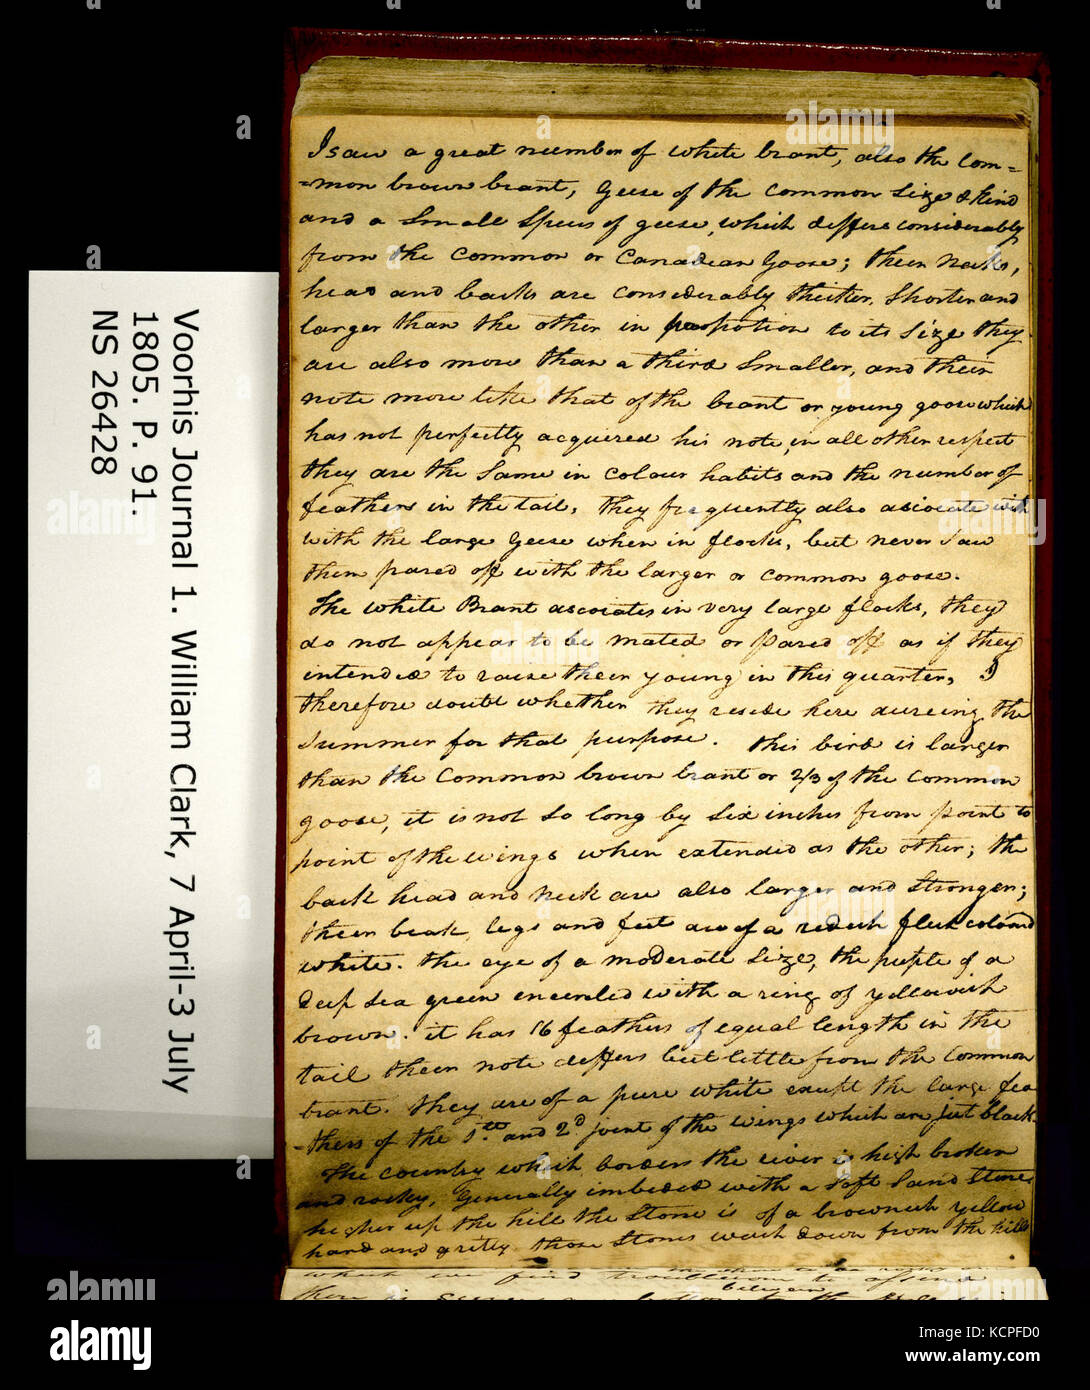 I saw a great number of white brant, also the Com=
=mon brown brant, Geese of the common Size & kind
and a Small Specis of geese, which differs considerably
from the Common or Canadean Goose; their Necks,
head and backs are considerably thicker, Shorter and
larger than the other in propotion to its Size they
are also more than a third Smaller, and their
note more like that of the brant or young goose which
has not perfectly acquired his note, in all other respect
they are the Same in Colour habits and the number of
feathers in the tail, they frequently also asociate with
with the large Geese when in flocks, but never Saw
them pared off with the larger or common goose.
The white Brant asociates in very large flocks, they
do not appear to be mated or pared off as if they
intended to raise their young in this quarter, I
therefore doubt whether they reside here dureing the
Summer for that purpose. this bird is larger
than the Common brown brant or 2/3 of the common
goose, it is not So long by Six inches from point to
point of the wings when extended as the other; the
back head and neck are also larger and Stronger;
their beak, legs and feet are of a redish flesh coloured
white. the eye of a moderate Size, the puple of a
deep Sea green encircled with a ring of yellowish
brown. it has 16 feathers of equal length in the
tail their note differs but little from the Common
brant. they are of a pure white except the large fea
=thers of the 1st and 2d joint of the wings which are jut black.
The country which borders the river is high broken
and rocky, Generally imbeded with a Soft Sand Stone
higher up the hill the Stone is of a brownish yellow
hard and gritty those Stones wash down from the hills
Voorhis Journal 1. William Clark, 7 April-3 July
1805. P. 91.
NS 26428
alamy stock photo
alamy
Image ID: KCPFD0
www.alamy.com